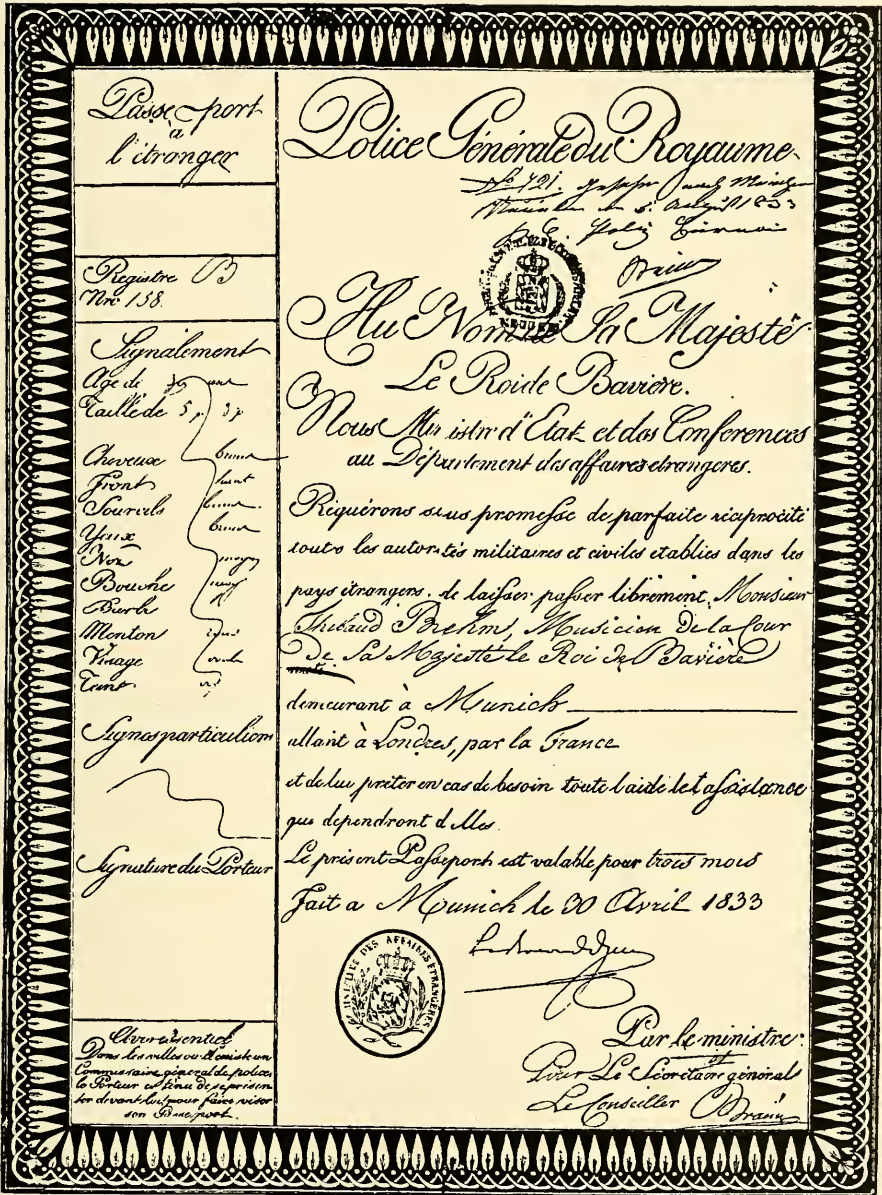 Passe-port
à
l'étranger
Registre B
Nro 158.
Signalement
Age de 39 ans
Taille de 5 p. 3 p
Cheveux bruns
Front haut
Sourcils bruns
Yeux bruns
Nez moyen
Bouche moy
Barbe
Menton rond
Visage ovale
Teint
Signes particuliers
Signature du Porteur
Avis essentiel
Dans les villes ou il existe un
Commissaire général de police
le Porteur est tenu de se présen
ter devant lui pour faire viser
son Passeport.
Police Générale du Royaume
No 721.
August 1833
Au Nom de Sa Majesté
Le Roi de Bavière.
Nous Ministre d'Etat et des Conferences
au Département des affaires etrangeres.
Réquérons sous promesse de parfaite réciprocité
toutes les autorités militaires et civiles etablies dans les
pays étrangers. de laisser passer librement, Monsieur
Thibaud Brehm, Musicien de la Cour
De Sa Majesté le Roi de Bavière
demeurant à Munich
allant à Londres, par la France
et de lui prêter en cas de besoin toute l'aide et assistance
que dependront d'elles.
Le présent Passeport est valable pour trois mois
Fait a Munich le 30 Avril 1833
MINISTÈRE DES AFFAIRES ÉTRANGÈRES
Par le ministre:
Pour Le Sécrétaire général
Le Conseiller